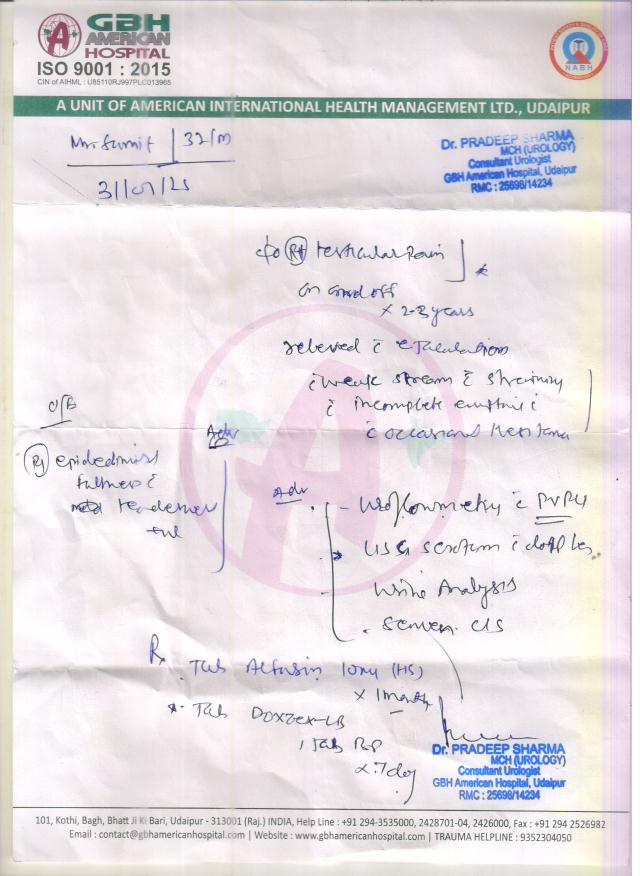 GBH
AMERICAN
HOSPITAL
ISO 9001 : 2015
CIN of AIHML : U85110RJ997PLC013965
NABH
A UNIT OF AMERICAN INTERNATIONAL HEALTH MANAGEMENT LTD., UDAIPUR
Mr Sumit | 32/M
Dr. PRADEEP SHARMA
MCH (UROLOGY)
Consultant Urologist
GBH American Hospital, Udaipur
RMC : 25698/14234
c/o Rt testicular Pain
on and off
x 2-3 years
relieved c ejaculation
c weak stream c straining
c incomplete
c occasional
O/E
Adv
epididymis
fullness c
tenderness
+ve
Adv
- Uroflowmetry c PVRU
USG scrotum c doppler
Urine Analysis
Semen C/S
Rx
Tab Alfusin 10mg (HS)
x 1 month
Tab DOXZEX-LB
1 Tab
x 7 day
Dr. PRADEEP SHARMA
MCH (UROLOGY)
Consultant Urologist
GBH American Hospital, Udaipur
RMC : 25698/14234
101, Kothi, Bagh, Bhatt Ji Ki Bari, Udaipur - 313001 (Raj.) INDIA, Help Line : +91 294-3535000, 2428701-04, 2426000, Fax : +91 294 2526982
Email : contact@gbhamericanhospital.com | Website : www.gbhamericanhospital.com | TRAUMA HELPLINE : 9352304050